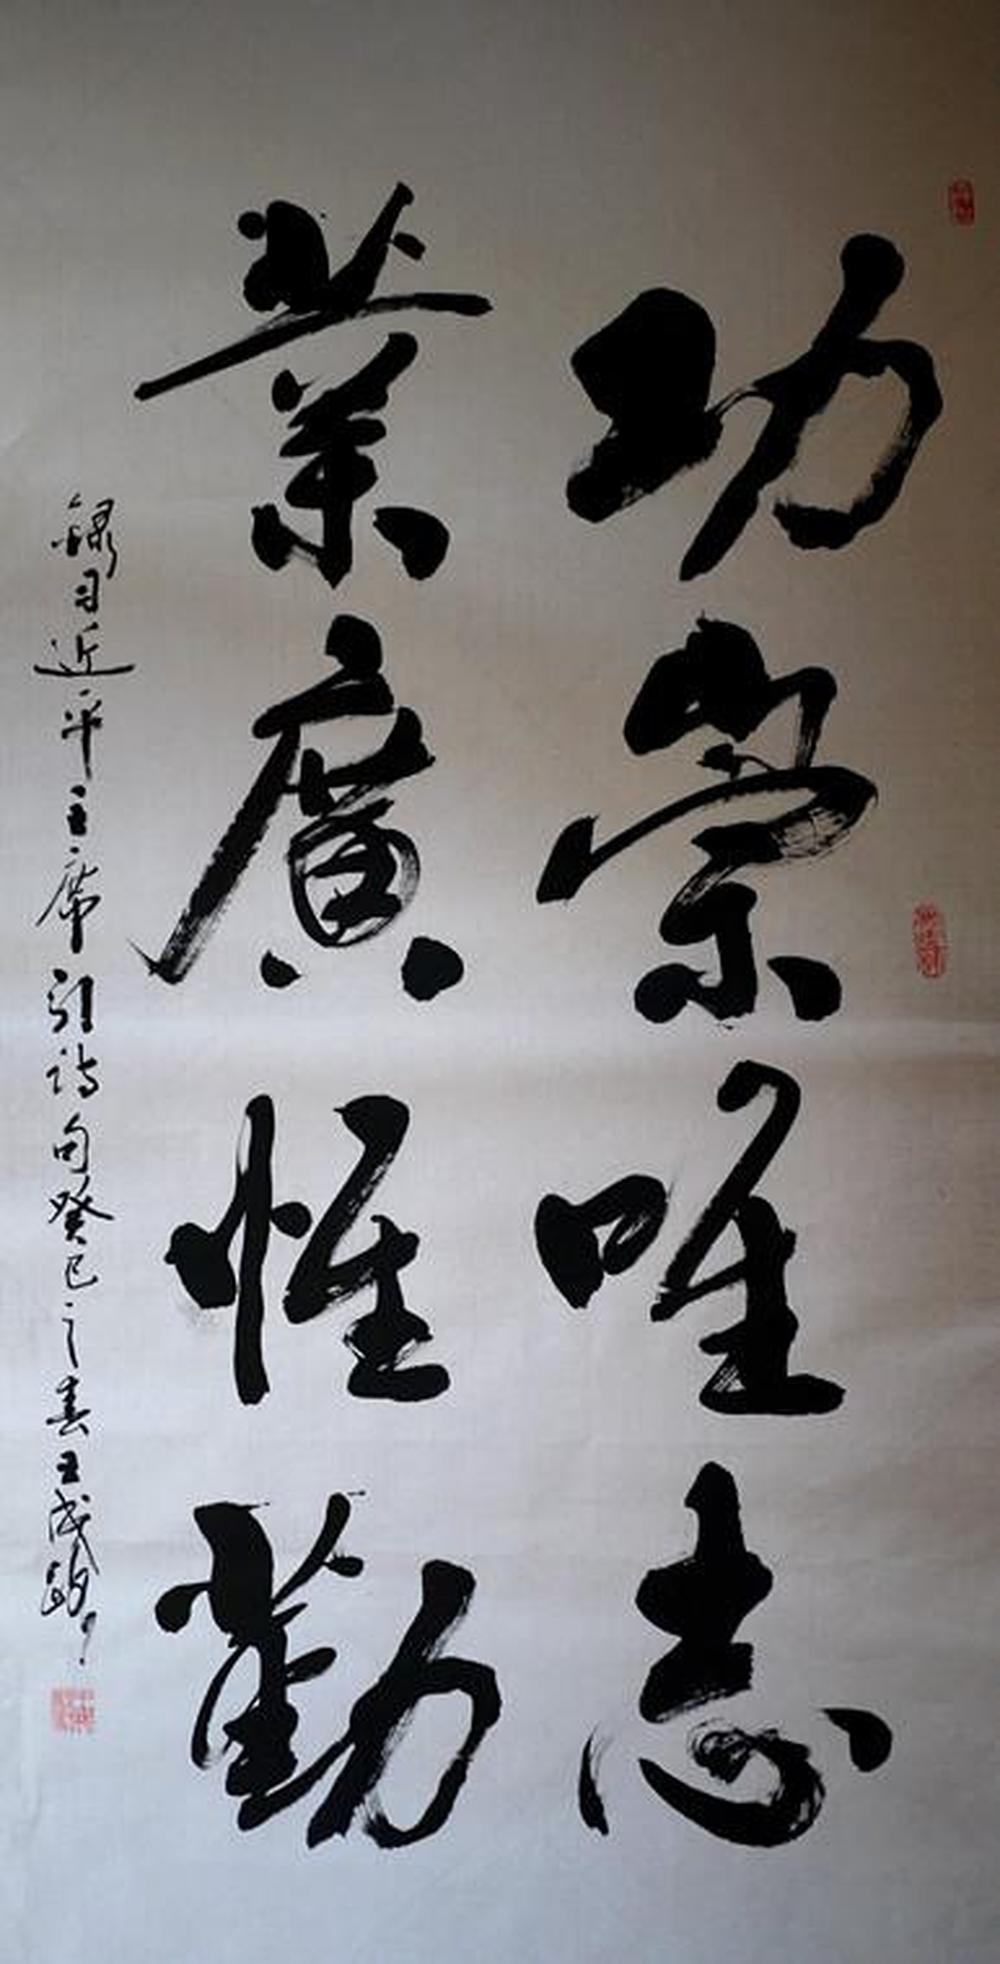 功崇唯志
業廣惟勤
錄习近平主席引诗句癸巳之春王成